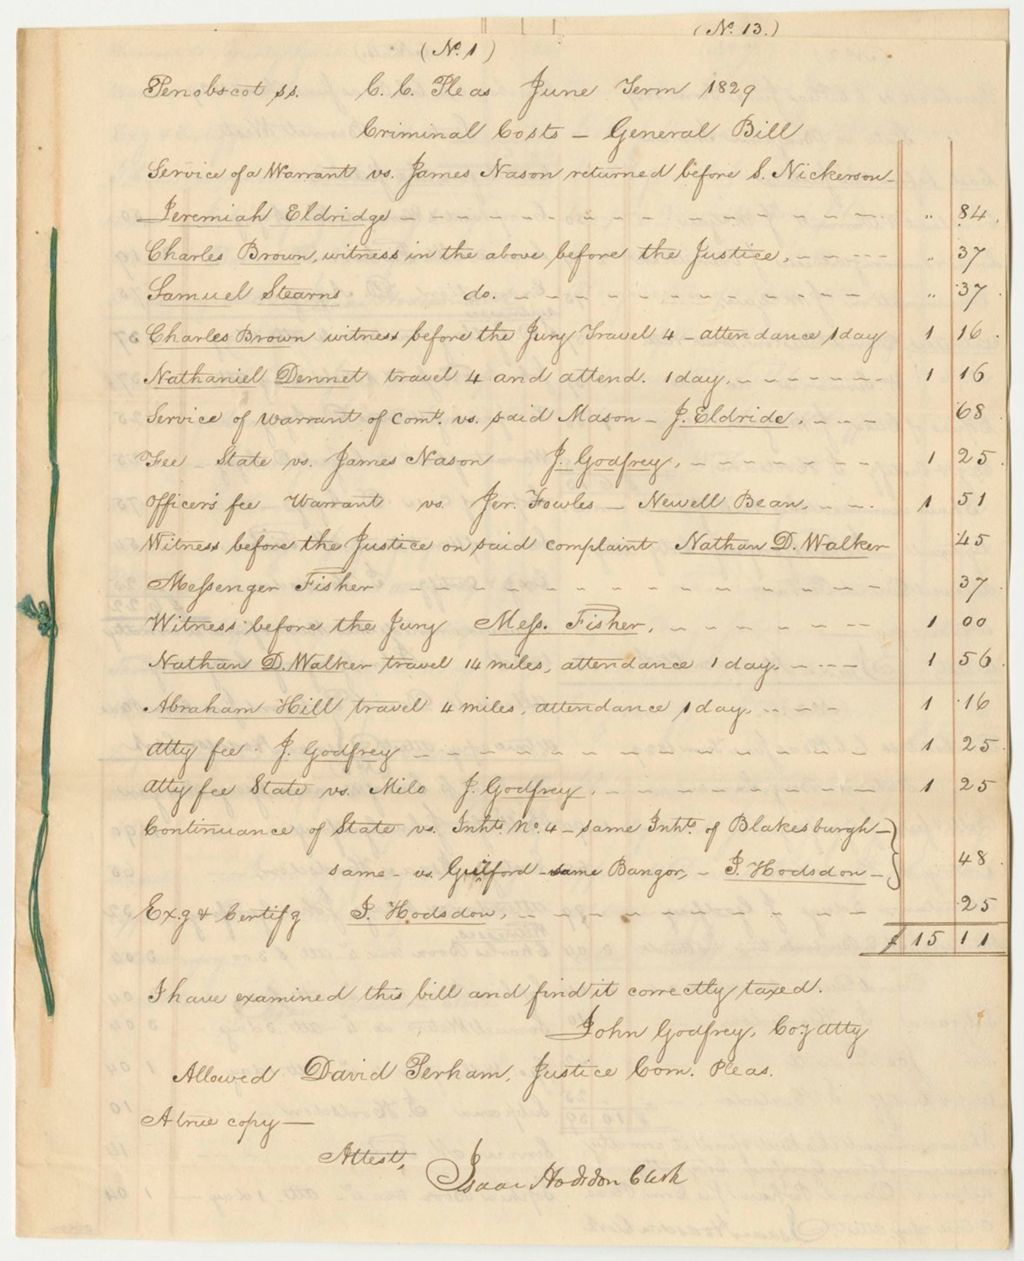 (No. 13.)
(No. 1)
Penobscot ss. C. C. Pleas June Term 1829
Criminal Costs – General Bill
Service of a Warrant vs. James Nason returned before S. Nickerson –
Jeremiah Eldridge " 84.
Charles Brown, witness in the above before the Justice, " 37
Samuel Stearns do. " 37.
Charles Brown witness before the Jury Travel 4 – attendance 1 day 1 16.
Nathaniel Dennet travel 4 and attend. 1 day. 1 16
Service of warrant of comt. vs. said Mason – J. Eldride, 68
Fee – State vs. James Nason J. Godfrey, 1 25.
Officer's fee Warrant vs. Jer. Fowles – Newell Bean, 1 51
Witness before the Justice on said complaint Nathan D. Walker 45
Messenger Fisher 37.
Witness before the Jury Mess. Fisher, 1 00
Nathan D. Walker travel 14 miles, attendance 1 day. 1 56.
Abraham Hill travel 4 miles, attendance 1 day 1 16
Atty fee. J. Godfrey 1 25.
Atty fee State vs. Milo J. Godfrey. 1 25
Continuance of State vs. Inhts. No. 4 – same Inhts. of Blakesburgh –
same – vs. Guilford – same Bangor, – I. Hodsdon – 48.
Ex.g & Certif.g I. Hodsdon, 25
$ 15 11
I have examined this bill and find it correctly taxed.
John Godfrey, Coy. atty
Allowed David Perham, Justice Com. Pleas.
A true copy —
Attest, Isaac Hodsdon Clerk